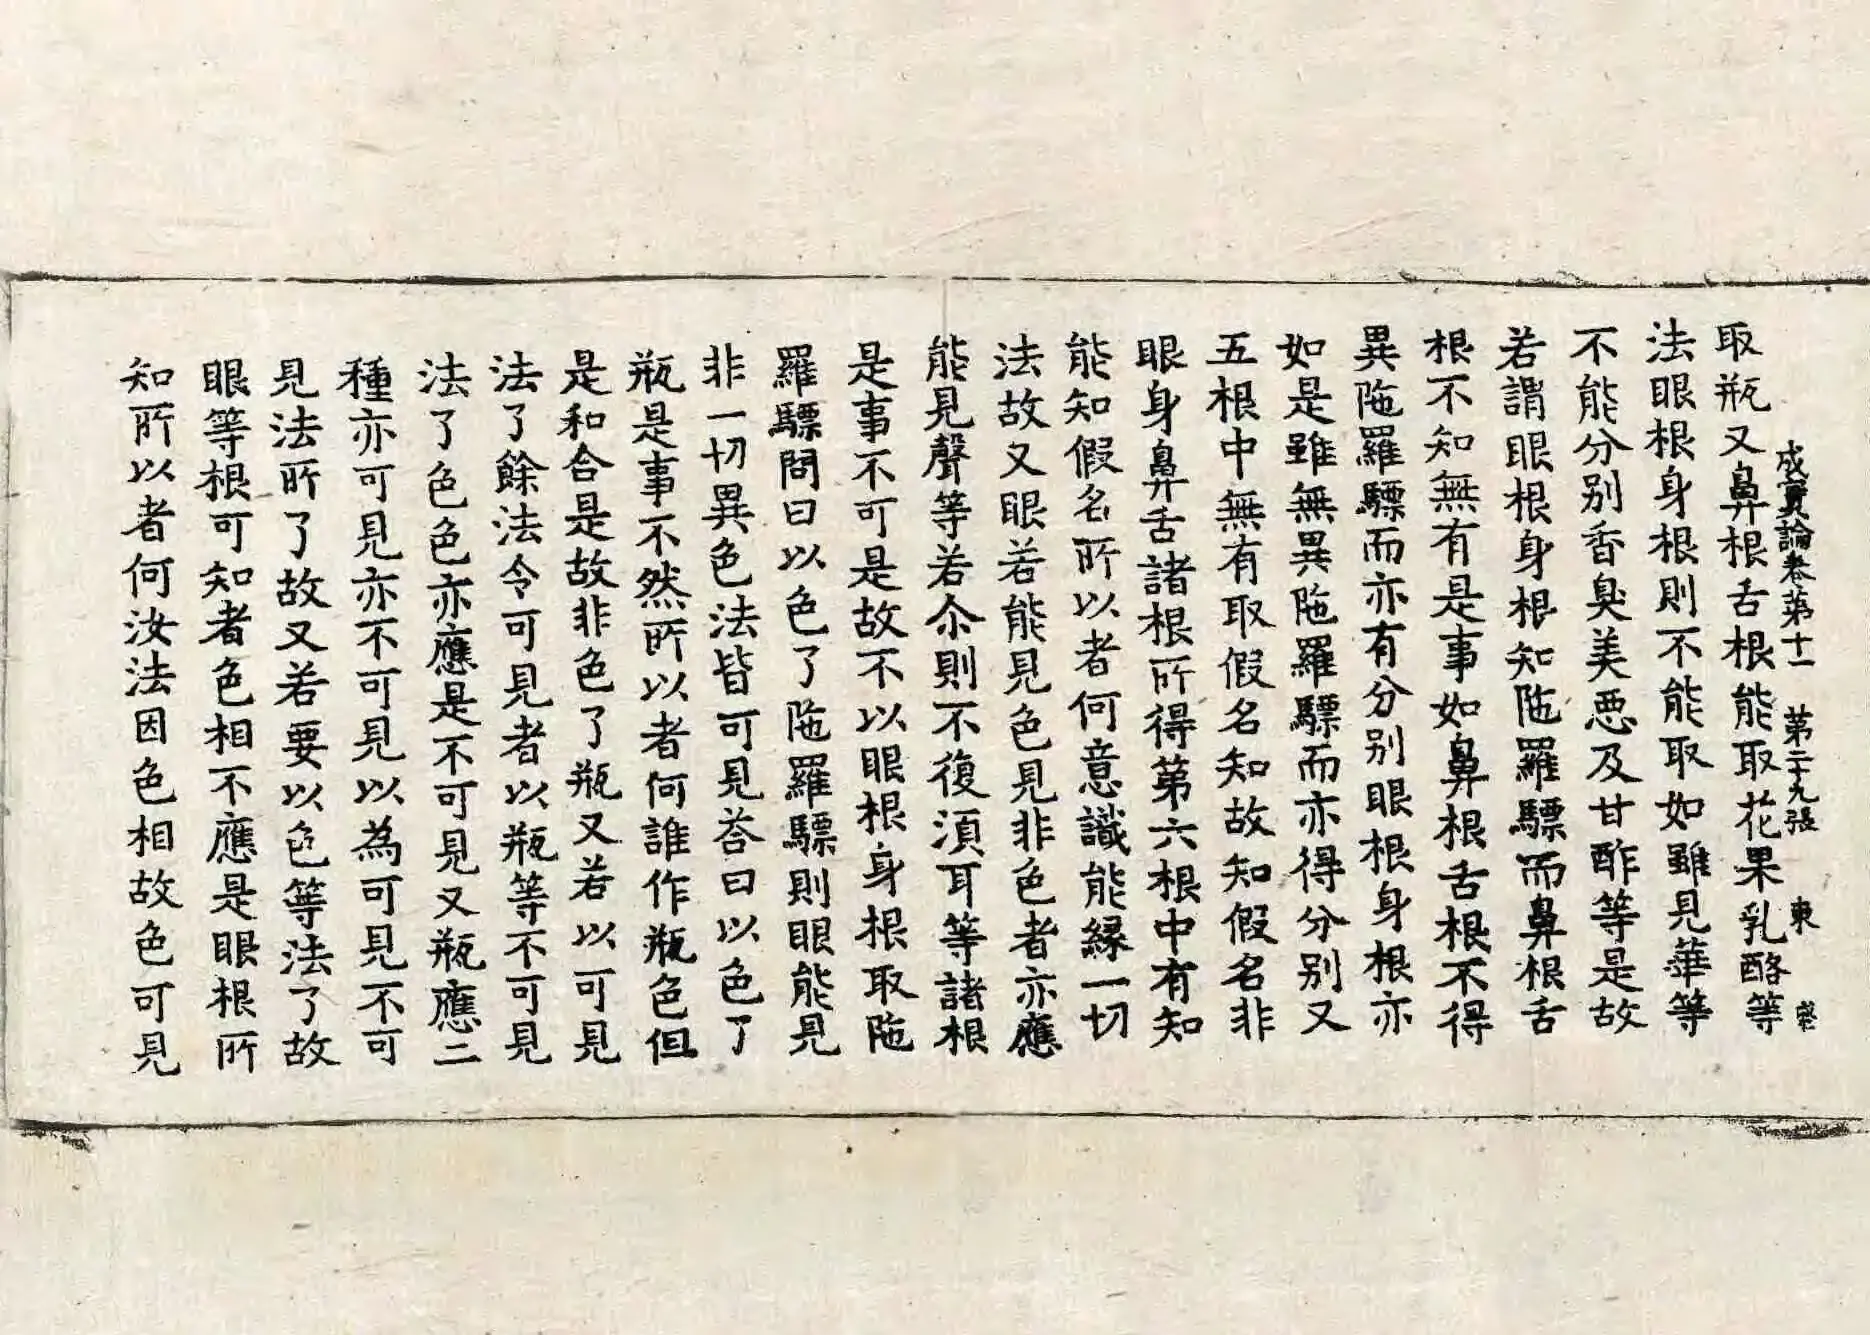 成實論卷第十一 第二十九張 東
取瓶又鼻根舌根能取花果乳酪等
法眼根身根則不能取如雖見華等
不能分别香臭美惡及甘酢等是故
若謂眼根身根知陁羅驃而鼻根舌
根不知無有是事如鼻根舌根不得
異陁羅驃而亦有分别眼根身根亦
如是雖無異陁羅驃而亦得分别又
五根中無有取假名知故知假名非
眼身鼻舌諸根所得第六根中有知
能知假名所以者何意識能緣一切
法故又眼若能見色見非色者亦應
能見聲等若尒則不復湏耳等諸根
是事不可是故不以眼根身根取陁
羅驃問曰以色了陁羅驃則眼能見
非一切異色法皆可見荅曰以色了
瓶是事不然所以者何誰作瓶色但
是和合是故非色了瓶又若以可見
法了餘法令可見者以瓶等不可見
法了色色亦應是不可見又瓶應二
種亦可見亦不可見以為可見不可
見法所了故又若要以色等法了故
眼等根可知者色相不應是眼根所
知所以者何汝法因色相故色可見